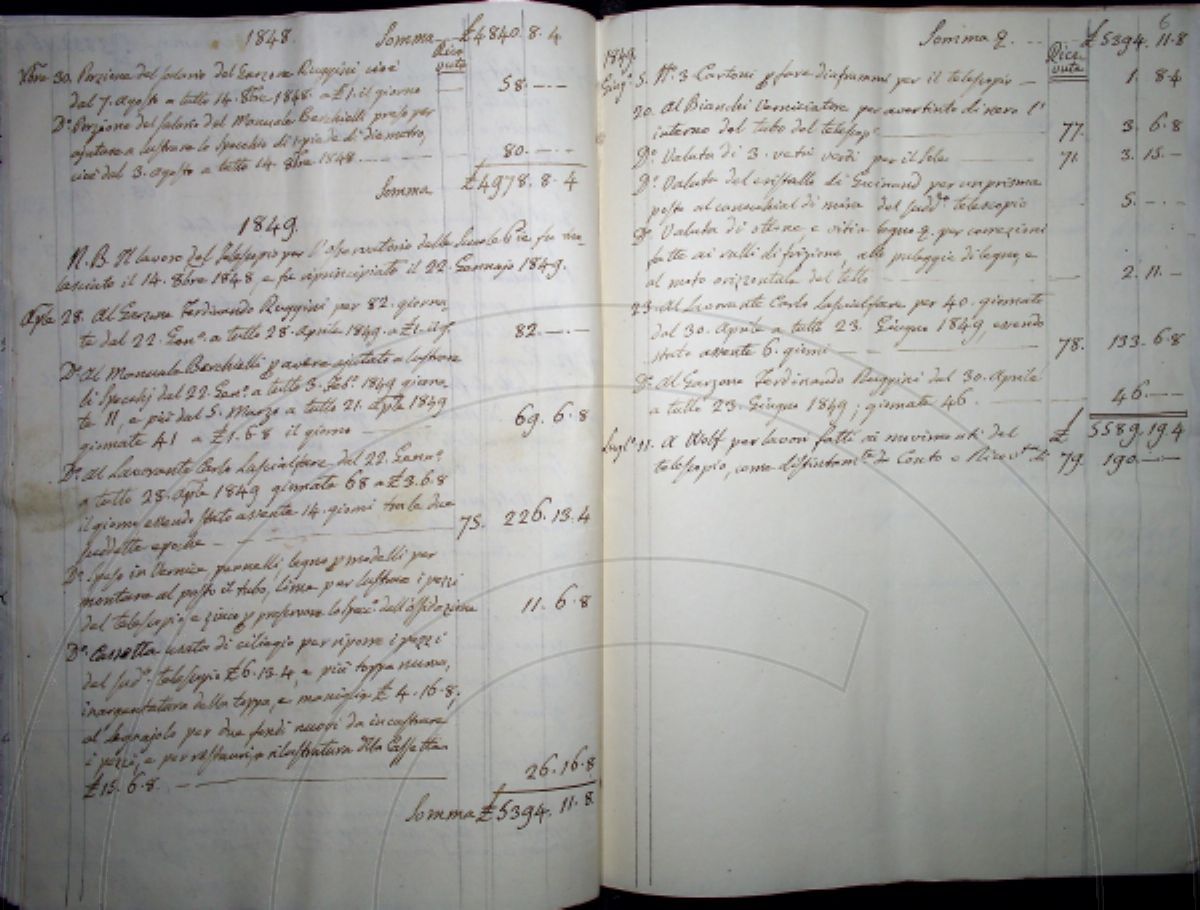 1848. Somma £4840. 8. 4
Rice
vuta
Xbre 30. Porzione del salario del Garzone Ruggini cioè
dal 7. Agosto a tutto 14. 8bre 1848. a £1. il giorno — 58. — . —
Do. Porzione del salario del Manuale Berchielli preso per
ajutare a lustrare lo Specchio di 1 piede di diametro,
cioè dal 3. agosto a tutto 14. 8bre 1848. — 80. — . —
Somma £4978. 8. 4
1849.
N.B. Il lavoro del Telescopio per l'Osservatorio delle Scuole Pie fu ri-
lasciato il 14. 8bre 1848 e fu riprincipiato il 22. Gennajo 1849.
Aple 28. Al Garzone Ferdinando Ruggini per 82. giorna-
te dal 22. Genno. a tutto 28. Aprile 1849. a £1. il go. 82. — . —
Do. Al Manuale Berchielli p avere ajutato a lustrare
li Specchj dal 22. Geno. a tutto 3. Febo. 1849 giorna-
te 11, e più dal 5. Marzo a tutto 21. Aple 1849
giornate 41 a £1. 6. 8 il giorno — 69. 6. 8
Do. Al Lavorante Carlo Lascialfare dal 22. Genno.
a tutto 28. Aple 1849 giornate 68 a £3. 6. 8
il giorno essendo stato assente 14. giorni tra le due
suddette epoche — 75. 226. 13. 4
Do. Speso in Vernice pennelli, legno p modelli per
montare al posto il tubo, lime per lustrare i pezzi
del telescopio, e zinco p preservare lo Specc.o dall'ossidazione 11. 6. 8
Do. Cassetta usata di ciliegio per riporre i pezzi
del sudo. telescopio £6. 13. 4, e più toppa nuova,
inargentatura della toppa, e maniglie £ 4. 16. 8;
al legnajolo per due fondi nuovi da incastrare
i pezzi, e per restauri e rilustratura della Cassetta
£15. 6. 8. — 26. 16. 8
Somma £5394. 11. 8
6
Somma £5394. 11. 8
1849.
Rice-
vuta
Giugo. 5. No. 3. Cartoni p fare diaframmi per il telescopio — 1. 8 4
20. Al Bianchi Verniciatore per aver tinto di nero l'
interno del tubo del telescopo. 77. 3. 6. 8
Do. Valuta di 3. vetri verdi per il Sole — 71. 3. 15. —
Do. Valuta del cristallo di Guinand per un prisma
posto al canocchial di mira del suddo. telescopio 5. — . —
Do. Valuta di ottone, e viti e legno per correzioni
fatte ai rulli di frizione, alle puleggie di legno, e
al moto orizzontale del tetto — 2. 11. —
23. Al Lavorante Carlo Lascialfare per 40. giornate
dal 30. Aprile a tutto 23. Giugno 1849, essendo
stato assente 6. giorni — 78. 133. 6. 8
Do. Al Garzone Ferdinando Ruggini dal 30. Aprile
a tutto 23. Giugno 1849; giornate 46. — 46. — . —
£ 5589. 19. 4
Lugl.o 11. A Wolf per lavori fatti ai movimenti del
telescopio, come distintamte. da Conto e Ricevta. di 79. 190. — . —